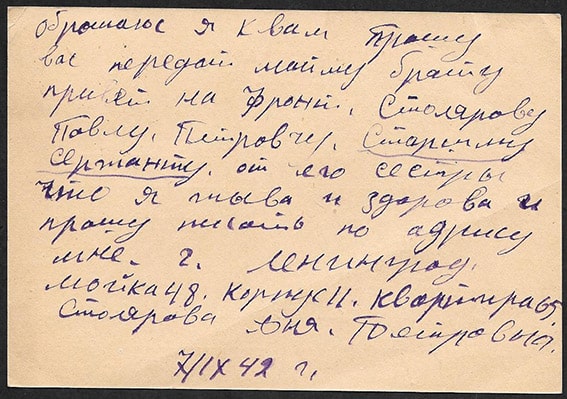 обрашаюс я к вам прошу
вас передат моиму брату
привет на фронт. Столярову
Павлу. Петровичу. Старшиму
сержанту. от его сестры
что я жыва и здорова и
прошу писать по адрису
мне. г. Ленинград.
мойка 48. корпус 11. квартира 65
Столярова Петровны.
7/IX 42 г.